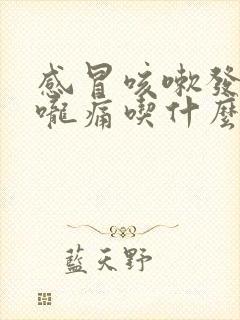 感冒咳嗽發
嚨痛喫什麼
藍天野